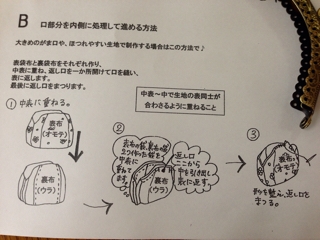 B 口部分を内側に処理して進める方法
大きめのがま口や、ほつれやすい生地で制作する場合はこの方法で♪
表袋布と裏袋布をそれぞれ作り、
中表に重ね、返し口を一か所開けて口を縫い、
表に返します。
最後に返し口をまつります。
中表～中で生地の表同士が
合わさるように重ねること
① 中表に重ねる。
表布
(オモテ)
裏布
(ウラ)
②
表布の袋、裏布の袋
2つ作った袋を
中表に
重ねてます
裏布
(ウラ)
返し口
ここから
中を引き出し
表に返す。
③
表布
(オモテ)
形を整え、返し口を
まつる。